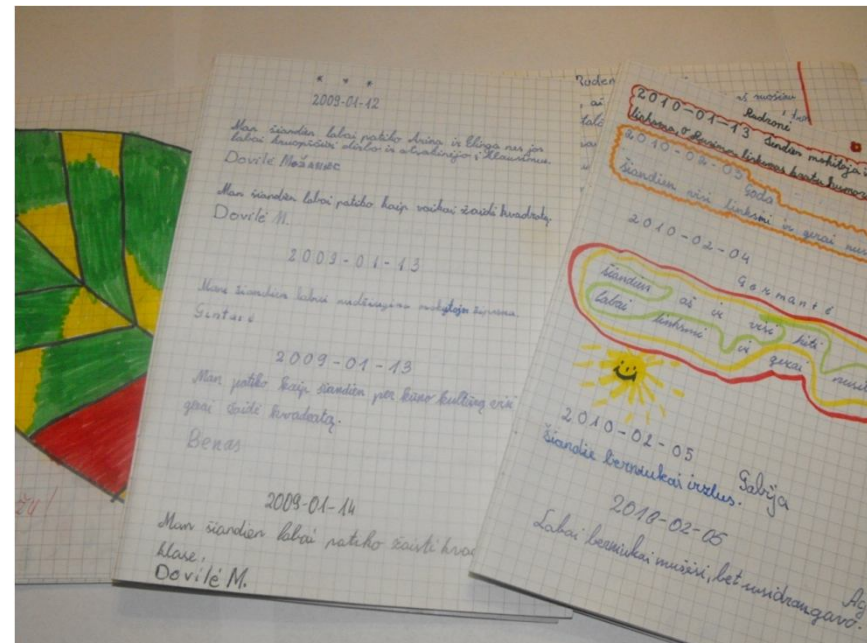 * * *
2009-01-12
Man šiandien labai patiko Arina ir nes jos
labai kruopščiai dirbo ir atsakinėjo į klausimus.
Dovilė
Man šiandien labai patiko kaip vaikai žaidė kvadratą.
Dovilė M.
2009-01-13
Man šiandien labai mokytoja
Gintarė
2009-01-13
Man patiko kaip šiandien per kūno kultūrą visi
gerai žaidė kvadratą.
Benas
2009-01-14
Man šiandien labai patiko žaisti kvad
klase.
Dovilė M.
2010-01-13 Šindien mokitoja
linksma, o
2010-02-03 Goda
Šiandien visi linksmi ir gerai nusi
2010-02-04
Gormantė
Šiandien aš ir visi kiti
labai linksmi ir gerai nusi
2010-02-05
Šiandie berniukai irzlus.
Gabija
2010-02-05
Labai berniukai mušėsi, bet susidraugavo.
Ag
žu!